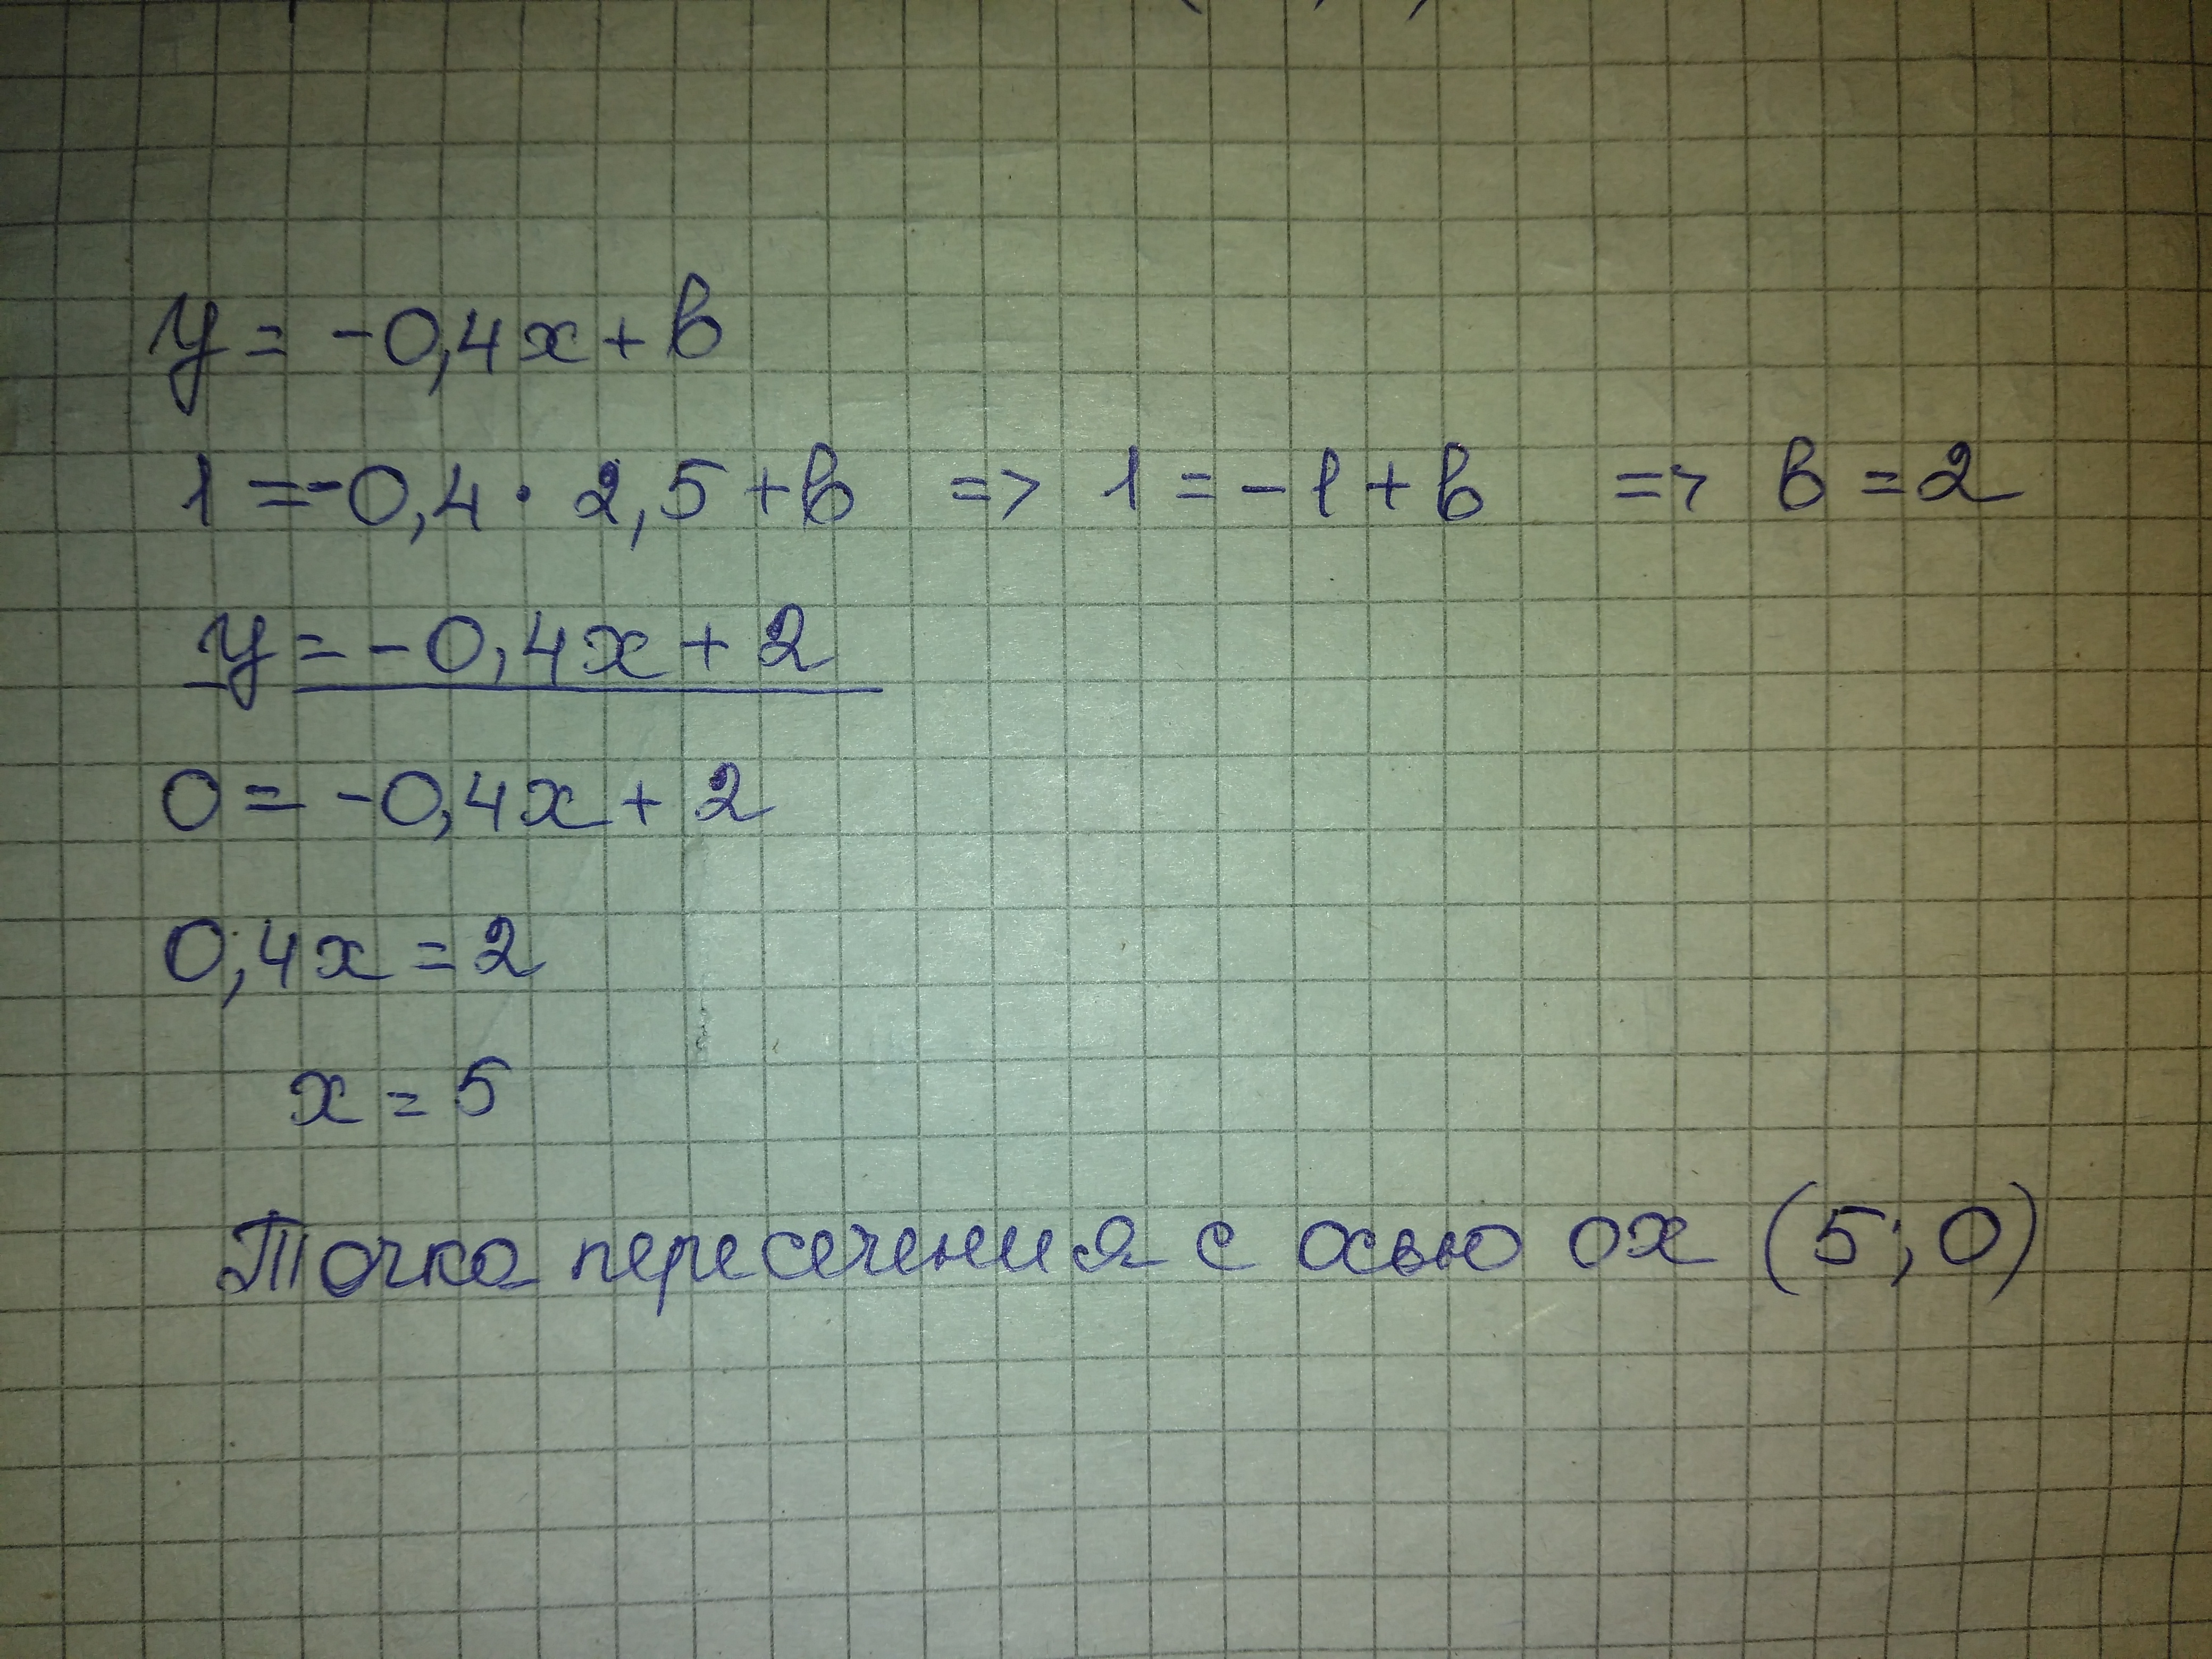 y = -0,4x + b
1 = -0,4 · 2,5 + b => 1 = -1 + b => b = 2
y = -0,4x + 2
0 = -0,4x + 2
0,4x = 2
x = 5
Точка пересечения с осью ох (5; 0)